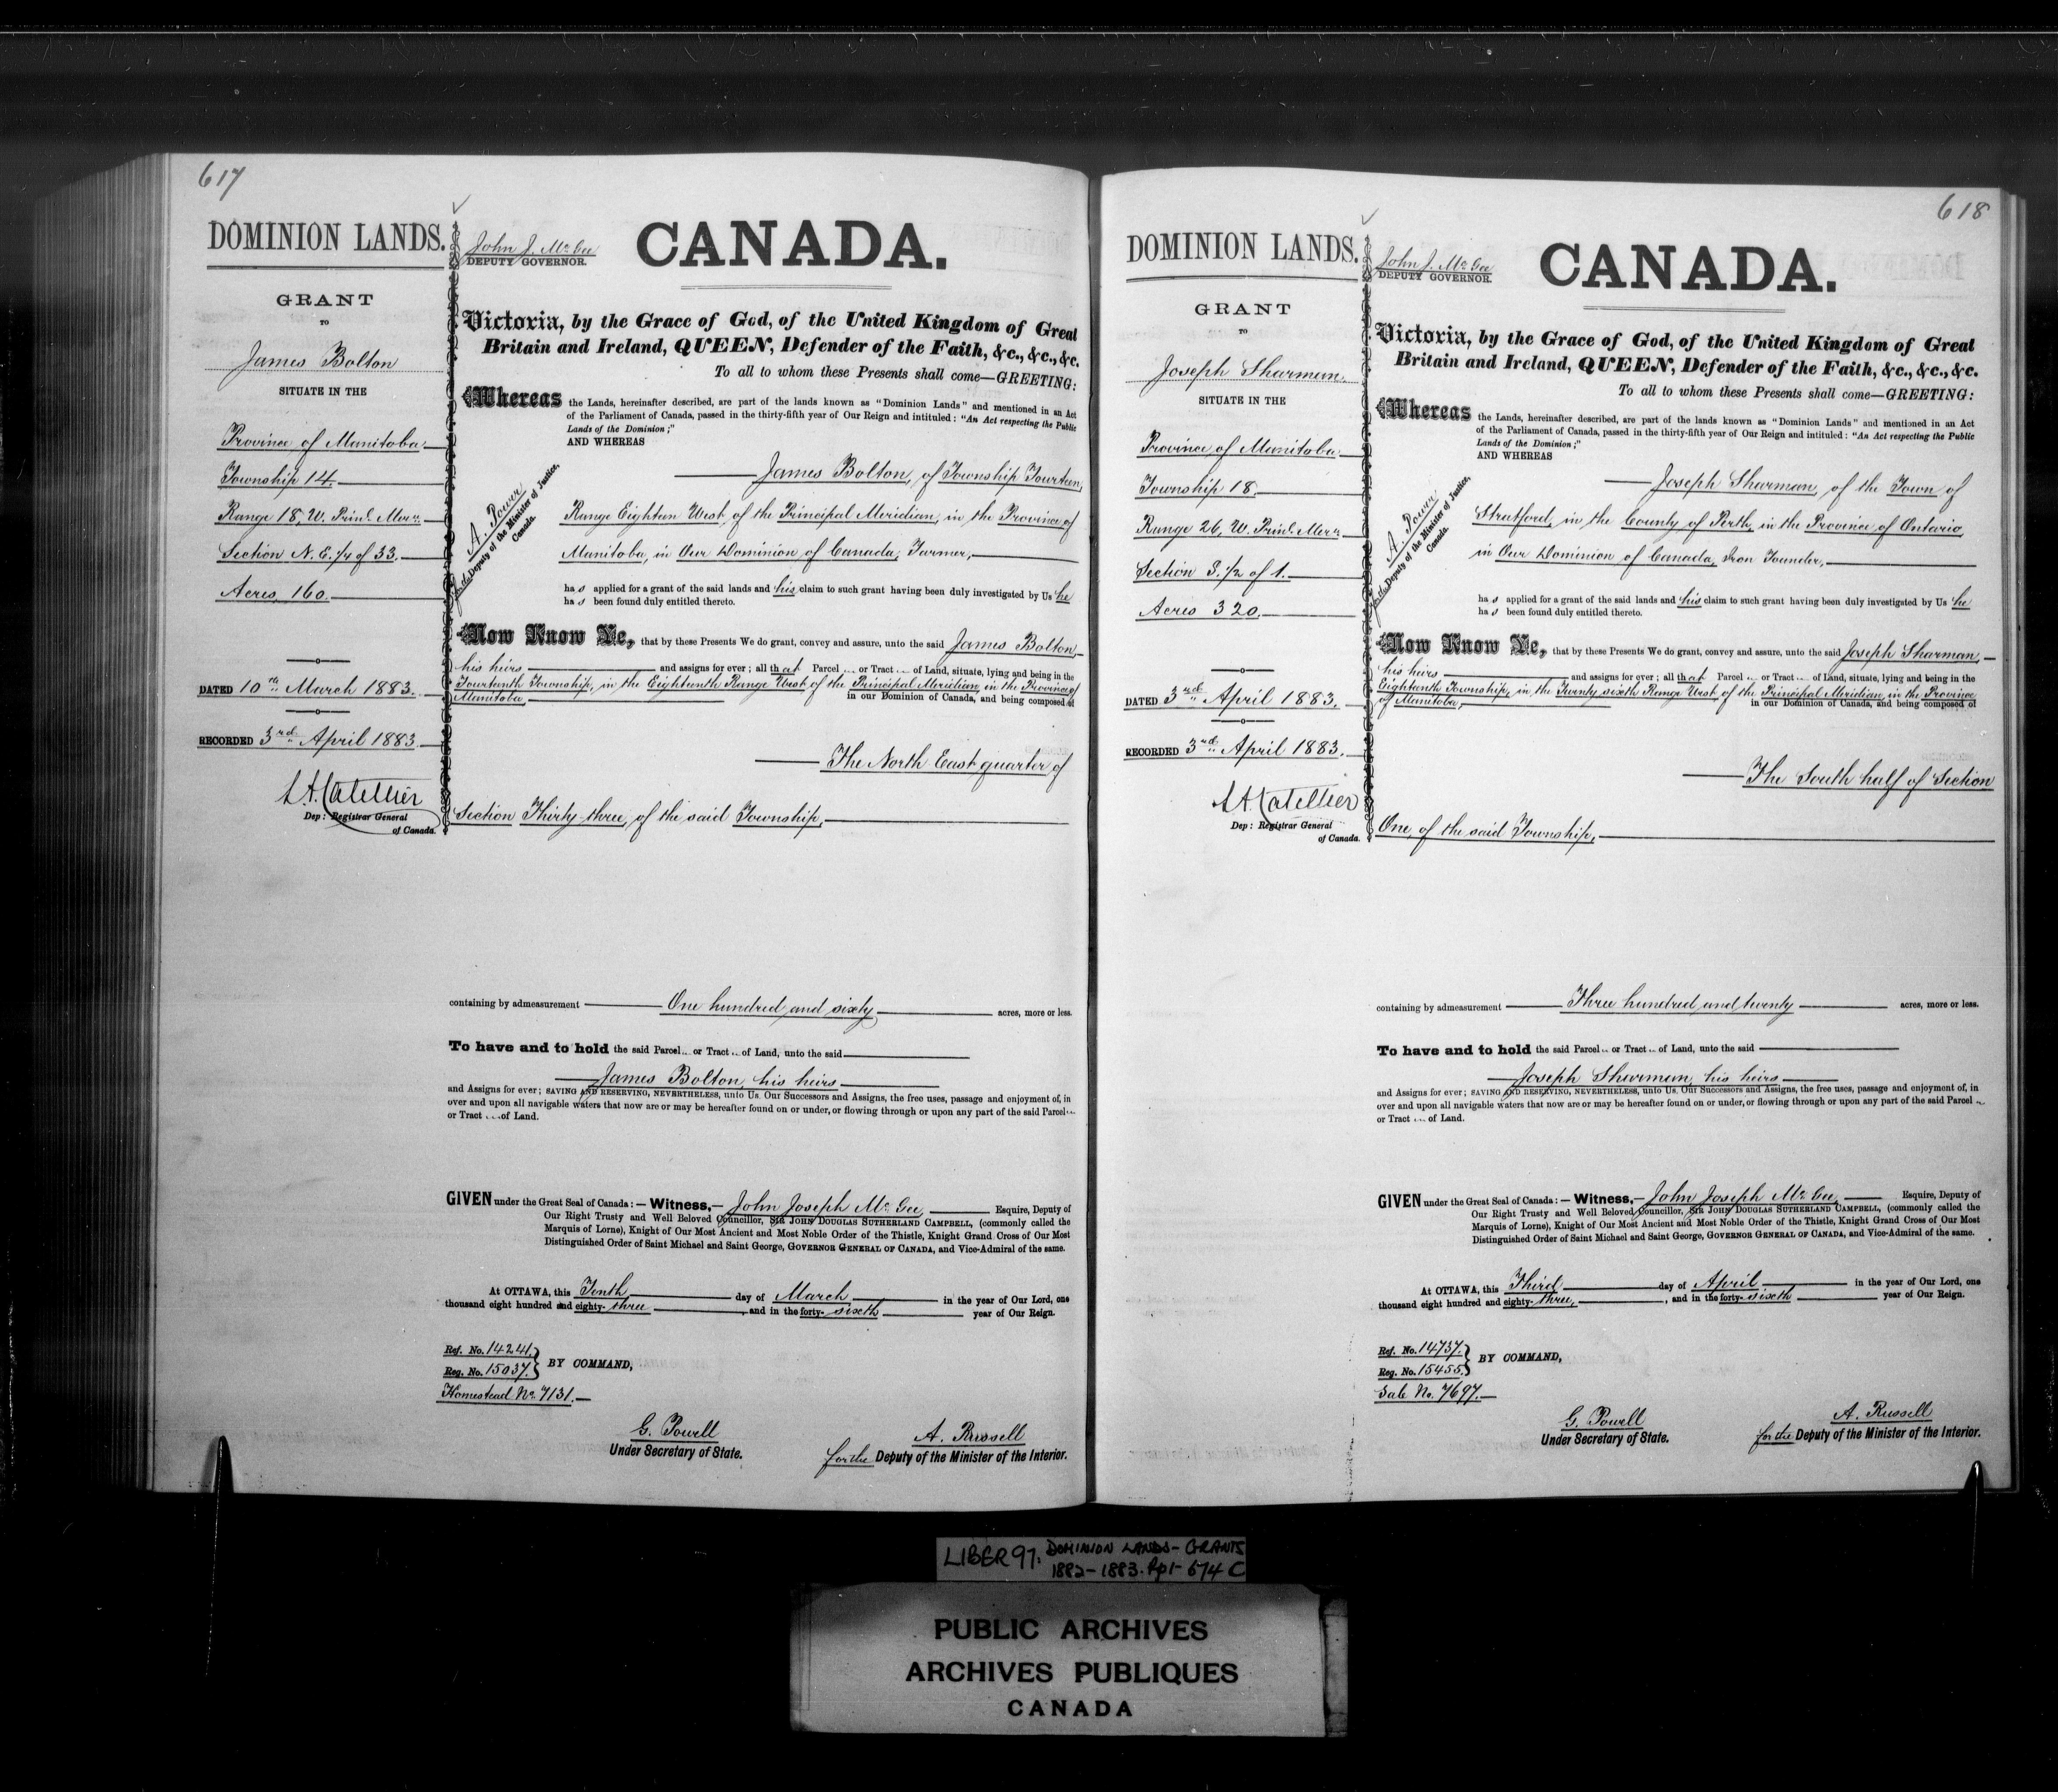 617
DOMINION LANDS.
GRANT
TO
James Bolton
SITUATE IN THE
Province of Manitoba
Township 14.
Range 18, W. Prinl. Mern.
Section N. E. 1/4 of 33.
Acres, 160.
DATED 10th March 1883.
RECORDED 3rd April 1883.
L. A. Catellier
Dep: Registrar General
of Canada.
John J. McGee
DEPUTY GOVERNOR.
CANADA.
Victoria, by the Grace of God, of the United Kingdom of Great
Britain and Ireland, QUEEN, Defender of the Faith, &c., &c., &c.
To all to whom these Presents shall come—GREETING:
Whereas the Lands, hereinafter described, are part of the lands known as "Dominion Lands" and mentioned in an Act
of the Parliament of Canada, passed in the thirty-fifth year of Our Reign and intituled: "An Act respecting the Public
Lands of the Dominion;"
AND WHEREAS
James Bolton, of Township Fourteen,
Range Eighteen West, of the Principal Meridian, in the Province of
Manitoba, in Our Dominion of Canada, Farmer,
A. Power
for the Deputy of the Minister of Justice,
Canada.
has applied for a grant of the said lands and his claim to such grant having been duly investigated by Us he
has been found duly entitled thereto.
Now Know Ye, that by these Presents We do grant, convey and assure, unto the said James Bolton,
his heirs and assigns for ever; all that Parcel or Tract of Land, situate, lying and being in the
Fourteenth Township, in the Eighteenth Range West of the Principal Meridian in the Province of
Manitoba in our Dominion of Canada, and being composed of
The North East quarter of
Section Thirty-three, of the said Township,
containing by admeasurement One hundred and sixty acres, more or less.
To have and to hold the said Parcel or Tract of Land, unto the said
James Bolton, his heirs
and Assigns for ever; SAVING AND RESERVING, NEVERTHELESS, unto Us, Our Successors and Assigns, the free uses, passage and enjoyment of, in
over and upon all navigable waters that now are or may be hereafter found on or under, or flowing through or upon any part of the said Parcel
or Tract of Land.
GIVEN under the Great Seal of Canada:— Witness,— John Joseph McGee, Esquire, Deputy of
Our Right Trusty and Well Beloved Councillor, SIR JOHN DOUGLAS SUTHERLAND CAMPBELL, (commonly called the
Marquis of Lorne), Knight of Our Most Ancient and Most Noble Order of the Thistle, Knight Grand Cross of Our Most
Distinguished Order of Saint Michael and Saint George, GOVERNOR GENERAL OF CANADA, and Vice-Admiral of the same.
At OTTAWA, this Tenth day of March in the year of Our Lord, one
thousand eight hundred and eighty-three, and in the forty-sixth year of Our Reign.
Ref. No. 14241.
Reg. No. 15037. } BY COMMAND,
Homestead No. 7131.
G. Powell
Under Secretary of State.
A. Russell
for the Deputy of the Minister of the Interior.
618
DOMINION LANDS.
GRANT
TO
Joseph Sharman
SITUATE IN THE
Province of Manitoba
Township 18.
Range 26, W. Prinl. Mern.
Section S. 1/2 of 1.
Acres 320.
DATED 3rd April 1883.
RECORDED 3rd April 1883.
L. A. Catellier
Dep: Registrar General
of Canada.
John J. McGee
DEPUTY GOVERNOR.
CANADA.
Victoria, by the Grace of God, of the United Kingdom of Great
Britain and Ireland, QUEEN, Defender of the Faith, &c., &c., &c.
To all to whom these Presents shall come—GREETING:
Whereas the Lands, hereinafter described, are part of the lands known as "Dominion Lands" and mentioned in an Act
of the Parliament of Canada, passed in the thirty-fifth year of Our Reign and intituled: "An Act respecting the Public
Lands of the Dominion;"
AND WHEREAS
Joseph Sharman, of the Town of
Stratford, in the County of Perth, in the Province of Ontario,
in Our Dominion of Canada, Iron Founder,
A. Power
for the Deputy of the Minister of Justice,
Canada.
has applied for a grant of the said lands and his claim to such grant having been duly investigated by Us he
has been found duly entitled thereto.
Now Know Ye, that by these Presents We do grant, convey and assure, unto the said Joseph Sharman,
his heirs and assigns for ever; all that Parcel or Tract of Land, situate, lying and being in the
Eighteenth Township, in the Twenty sixth Range West of the Principal Meridian, in the Province
of Manitoba, in our Dominion of Canada, and being composed of
The South half of Section
One, of the said Township,
containing by admeasurement Three hundred and twenty acres, more or less.
To have and to hold the said Parcel or Tract of Land, unto the said
Joseph Sharman, his heirs
and Assigns for ever; SAVING AND RESERVING, NEVERTHELESS, unto Us, Our Successors and Assigns, the free uses, passage and enjoyment of, in
over and upon all navigable waters that now are or may be hereafter found on or under, or flowing through or upon any part of the said Parcel
or Tract of Land.
GIVEN under the Great Seal of Canada:— Witness,— John Joseph McGee, Esquire, Deputy of
Our Right Trusty and Well Beloved Councillor, SIR JOHN DOUGLAS SUTHERLAND CAMPBELL, (commonly called the
Marquis of Lorne), Knight of Our Most Ancient and Most Noble Order of the Thistle, Knight Grand Cross of Our Most
Distinguished Order of Saint Michael and Saint George, GOVERNOR GENERAL OF CANADA, and Vice-Admiral of the same.
At OTTAWA, this Third day of April in the year of Our Lord, one
thousand eight hundred and eighty-three, and in the forty-sixth year of Our Reign.
Ref. No. 14737.
Reg. No. 15455. } BY COMMAND,
Sale No. 7697.
G. Powell
Under Secretary of State.
A. Russell
for the Deputy of the Minister of the Interior.
LIBER 97. DOMINION LANDS - GRANTS
1882-1883. Pp 1- 674 C
PUBLIC ARCHIVES
ARCHIVES PUBLIQUES
CANADA